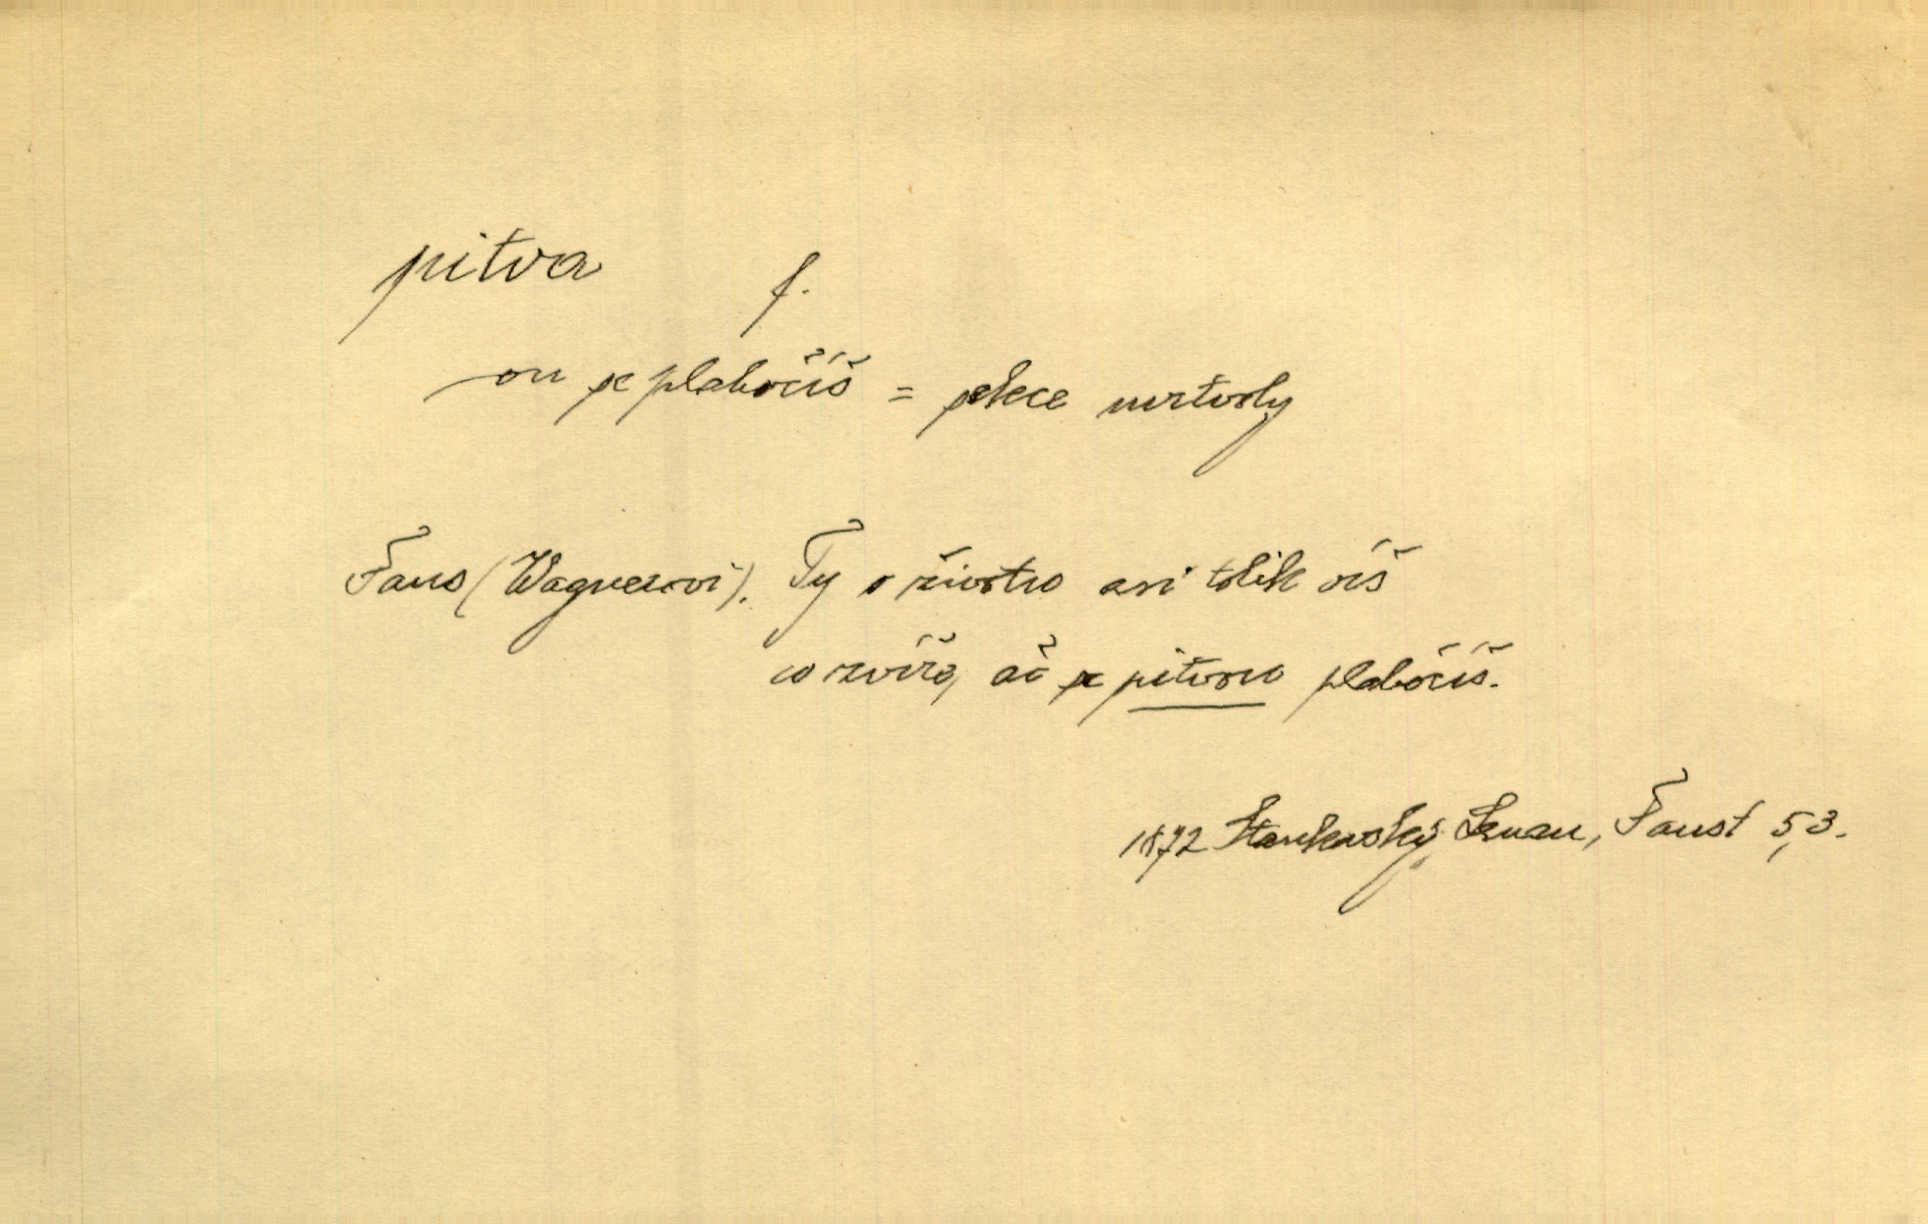 pitva f.
-ou se plahočíš = mrtvoly
Faus (Wagnerovi). Ty o životu asi tolik víš
co zvíře, ač se pitvou plahočíš.
1872 Stankovský, Lenau, Faust 5,3.